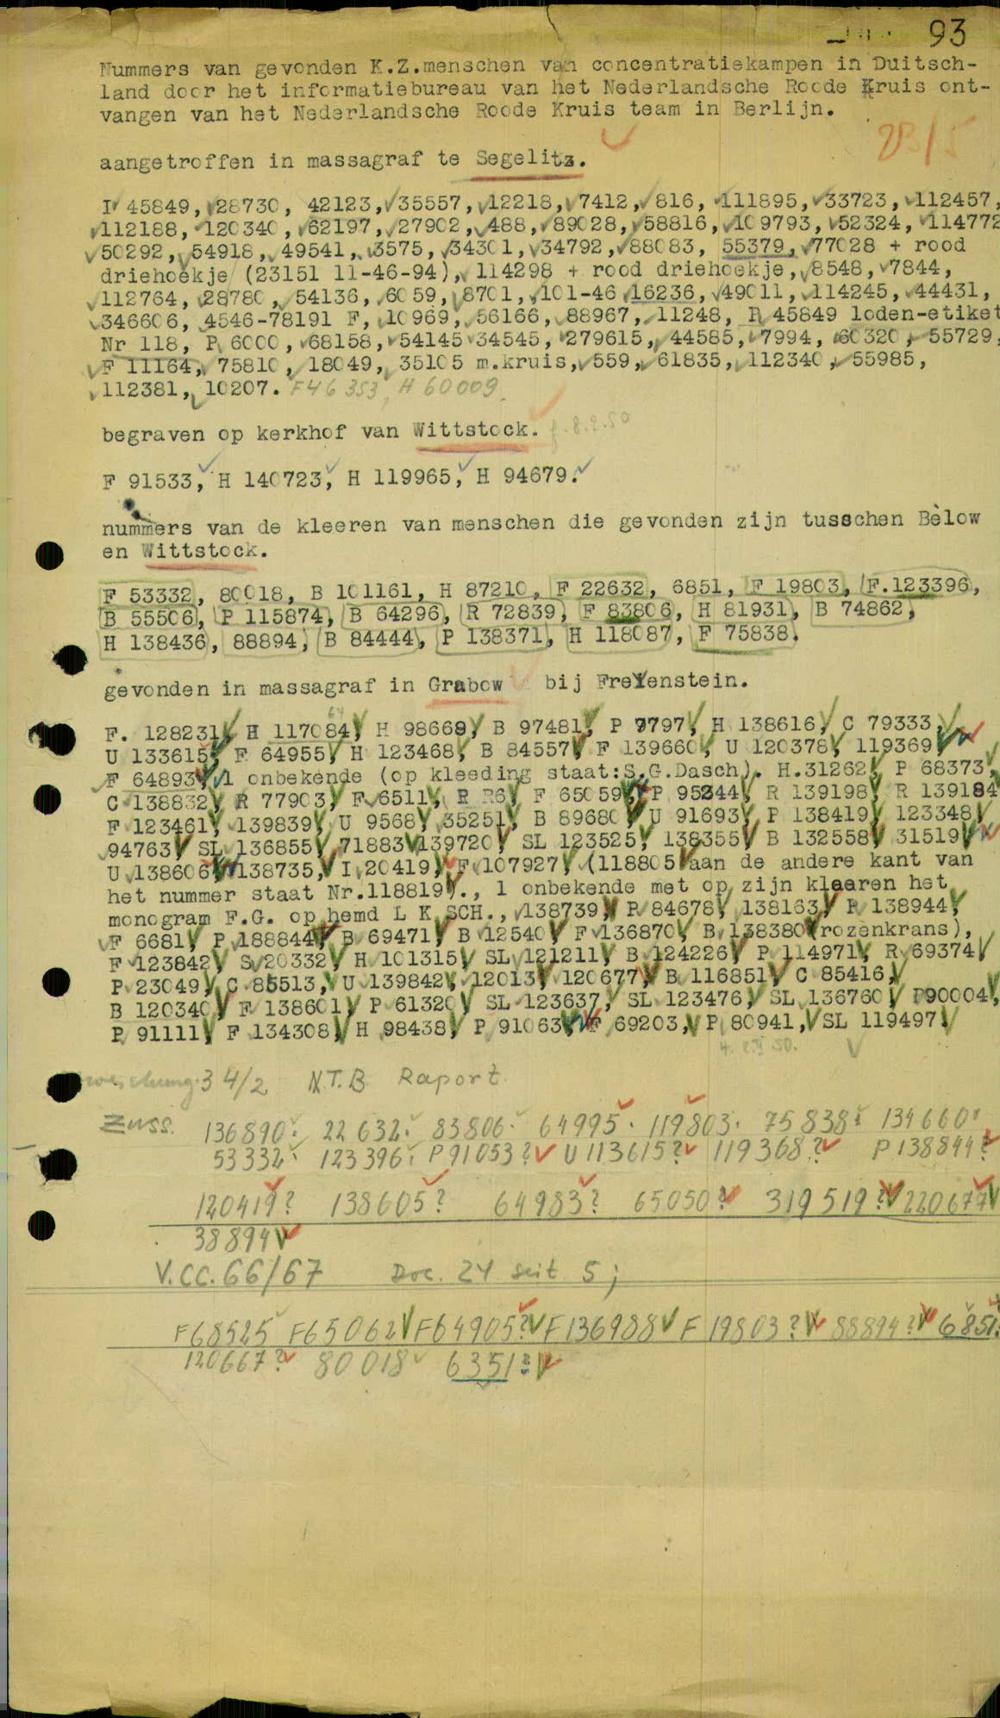 93
Nummers van gevonden K.Z.menschen van concentratiekampen in Duitsch-
land door het informatiebureau van het Nederlandsche Roode Kruis ont-
vangen van het Nederlandsche Roode Kruis team in Berlijn.
aangetroffen in massagraf te Segelitz.
I 45849, 28730, 42123, 35557, 12218, 7412, 816, 111895, 33723, 112457,
112188, 120340, 62197, 27902, 488, 89028, 58816, 109793, 52324, 114772
50292, 54918, 49541, 3575, 34301, 34792, 88083, 55379, 77028 + rood
driehoekje (23151 11-46-94), 114298 + rood driehoekje, 8548, 7844,
112764, 28780, 54136, 6059, 8701, 101-46 16236, 49011, 114245, 44431,
346606, 4546-78191 F, 10969, 56166, 88967, 11248, R 45849 loden-etiket
Nr 118, P 6000, 68158, 54145 34545, 279615, 44585, 7994, 60320, 55729,
F 11164, 75810, 18049, 35105 m.kruis, 559, 61835, 112340, 55985,
112381, 10207. F46353, H 60009
begraven op kerkhof van Wittstock. 8.2.50
F 91533, H 140723, H 119965, H 94679.
nummers van de kleeren van menschen die gevonden zijn tusschen Bèlow
en Wittstock.
F 53332, 80018, B 101161, H 87210, F 22632, 6851, F 19803, F.123396,
B 55506, P 115874, B 64296, R 72839, F 83806, H 81931, B 74862,
H 138436, 88894, B 84444, P 138371, H 118087, F 75838.
gevonden in massagraf in Grabow bij Freyenstein.
F. 128231, H 117084, H 98668, B 97481, P 9797, H 138616, C 79333,
U 133615, F 64955, H 123468, B 84557, F 139660, U 120378, 119369
F 64893, 1 onbekende (op kleeding staat:S.G.Dasch). H.31262, P 68373,
C 138832, R 77903, F 6511, R R6, F 65059, P 95244, R 139198, R 139184
F 123461, 139839, U 9568, 35251, B 89680, U 91693, P 138419, 123348,
94763, SL 136855, 71883, 139720, SL 123525, 138355, B 132558, 31519
U 138606, 138735, I 20419, F 107927, (118805 aan de andere kant van
het nummer staat Nr.118819)., 1 onbekende met op zijn kleeren het
monogram F.G. op hemd L K SCH., 138739, P 84678, 138163, P 138944,
F 6681, P 188844, B 69471, B 12540, F 136870, B 138380 (rozenkrans),
F 123842, S 20332, H 101315, SL 121211, B 124226, P 114971, R 69374,
P 23049, C 85513, U 139842, 12013, 120677, B 116851, C 85416,
B 120340, F 138601, P 61320, SL 123637, SL 123476, SL 136760, P90004,
P 91111, F 134308, H 98438, P 91063, F 69203, P 80941, SL 119497
34/2 N.T.B Raport
Zuss. 136890. 22632. 83806. 64995. 119803. 75838. 134660.
53332. 123396. P91053? U 113615? 119368? P138844?
120419? 138605? 64983? 65050? 319519? 220677
38894
V.CC.66/67 Doc. 24 seit 5;
F68525 F65062 F64905? F136988 F 19803? 88894? 6851?
120667? 80018 6351?